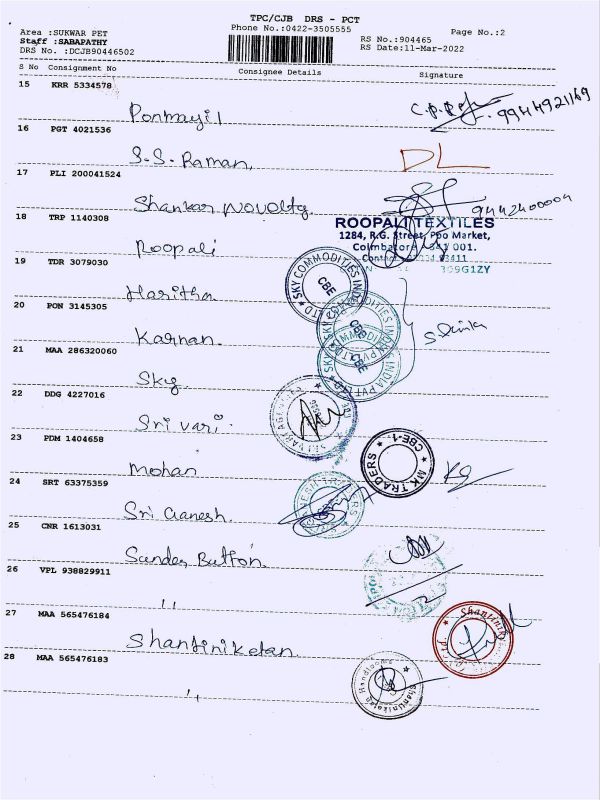 TPC/CJB DRS - PCT
Phone No.:0422-3505555
Area :SUKWAR PET
Staff :SABAPATHY
DRS No. :DCJB90446502
RS No.:904465
RS Date:11-Mar-2022
Page No.:2
S No Consignment No Consignee Details Signature
15 KRR 5334578
Ponmayil
9944921169
16 PGT 4021536
S.S. Raman
DL
17 PLI 200041524
Shankar Novolty
18 TRP 1140308
Roopali
ROOPALI TEXTILES
1284, R.G. Street, Poo Market,
Coimbatore - 641 001.
309G1ZY
19 TDR 3079030
Haritha
SKY COMMODITIES INDIA
CBE
20 PON 3145305
Karnan
21 MAA 286320060
Sky
22 DDG 4227016
Sri vari
23 PDM 1404658
Mohan
MK TRADERS
CBE-1
24 SRT 63375359
Sri Ganesh
25 CNR 1613031
Sunder Button
26 VPL 938829911
,,
27 MAA 565476184
Shantiniketan
28 MAA 565476183
,,
Shantiniketan Handlooms